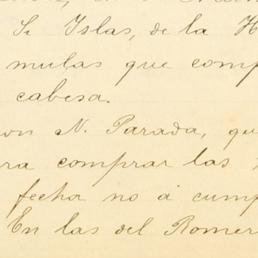 Sr Islas, de la H
mulas que comp
cabesa.
on N. Parada, qu
ra comprar las
fecha no á cump
En las del Romer